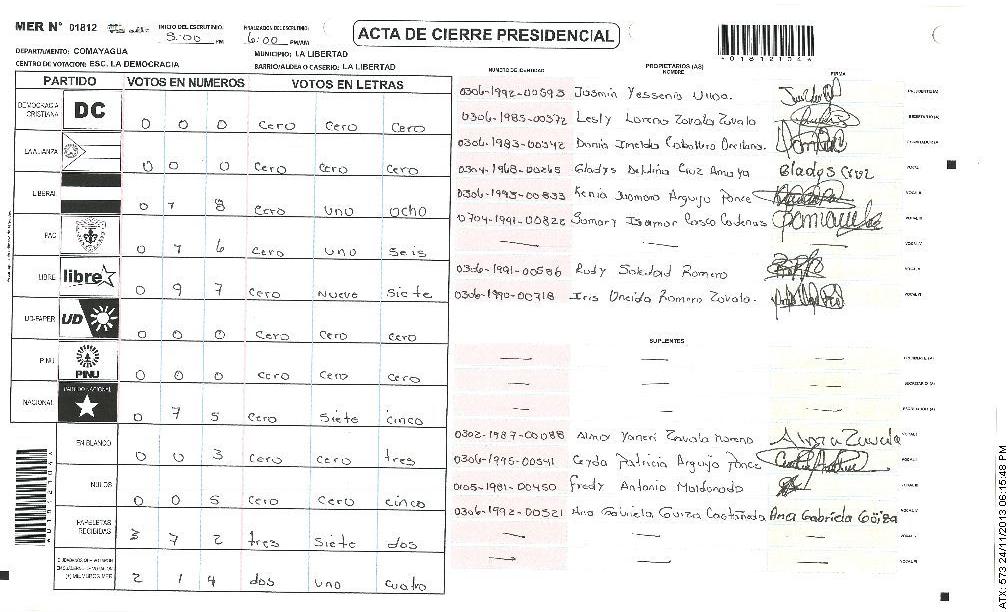 MER N° 01812 INICIO DEL ESCRUTINIO: 5:00 PM FINALIZACION DEL ESCRUTINIO: 6:00 PM/AM ACTA DE CIERRE PRESIDENCIAL
DEPARTAMENTO: COMAYAGUA MUNICIPIO: LA LIBERTAD
CENTRO DE VOTACION: ESC. LA DEMOCRACIA BARRIO/ALDEA O CASERIO: LA LIBERTAD
PARTIDO VOTOS EN NUMEROS VOTOS EN LETRAS
DEMOCRACIA CRISTIANA DC 0 0 0 Cero Cero Cero
LA ALIANZA 0 0 0 Cero Cero Cero
LIBERAL 0 7 8 Cero uno ocho
PAC 0 7 6 Cero uno seis
LIBRE libre 0 9 7 Cero Nueve siete
UD-FAPER UD 0 0 0 Cero Cero Cero
PINU PINU 0 0 0 Cero Cero Cero
NACIONAL PARTIDO NACIONAL 0 7 5 Cero siete cinco
EN BLANCO 0 0 3 Cero Cero tres
NULOS 0 0 5 Cero Cero cinco
PAPELETAS RECIBIDAS 3 7 2 tres siete dos
(+) MIEMBROS MER 2 1 4 dos uno cuatro
NUMERO DE IDENTIDAD PROPIETARIOS (AS) NOMBRE FIRMA
0306-1992-00593 Jasmin Yessenia PRESIDENTE(A)
0306-1985-00372 Lesly Lorena Zavala Zavala SECRETARIO(A)
0306-1983-00342 Dania Imelda Caballero Orellana
0304-1968-00265 Gladys Cruz Amaya Gladys Cruz VOCAL
0306-1993-00833 Kenia Arguijo Ponce
0704-1991-00822 Isamar Cadenas
0306-1991-00586 Rudy Soledad Romero
0306-1990-00718 Iris Oneida Romero Zavala
SUPLENTES
0302-1987-00088 Alma Yaneri Zavala Moreno Alma Zavala
0306-1995-00541 Patricia Arguijo Ponce
0105-1981-00450 Fredy Antonio Maldonado
0306-1992-00521 Ana Gabriela Castañeda Ana Gabriela
01812104
ATX: 573 24/11/2013 06:15:48 PM